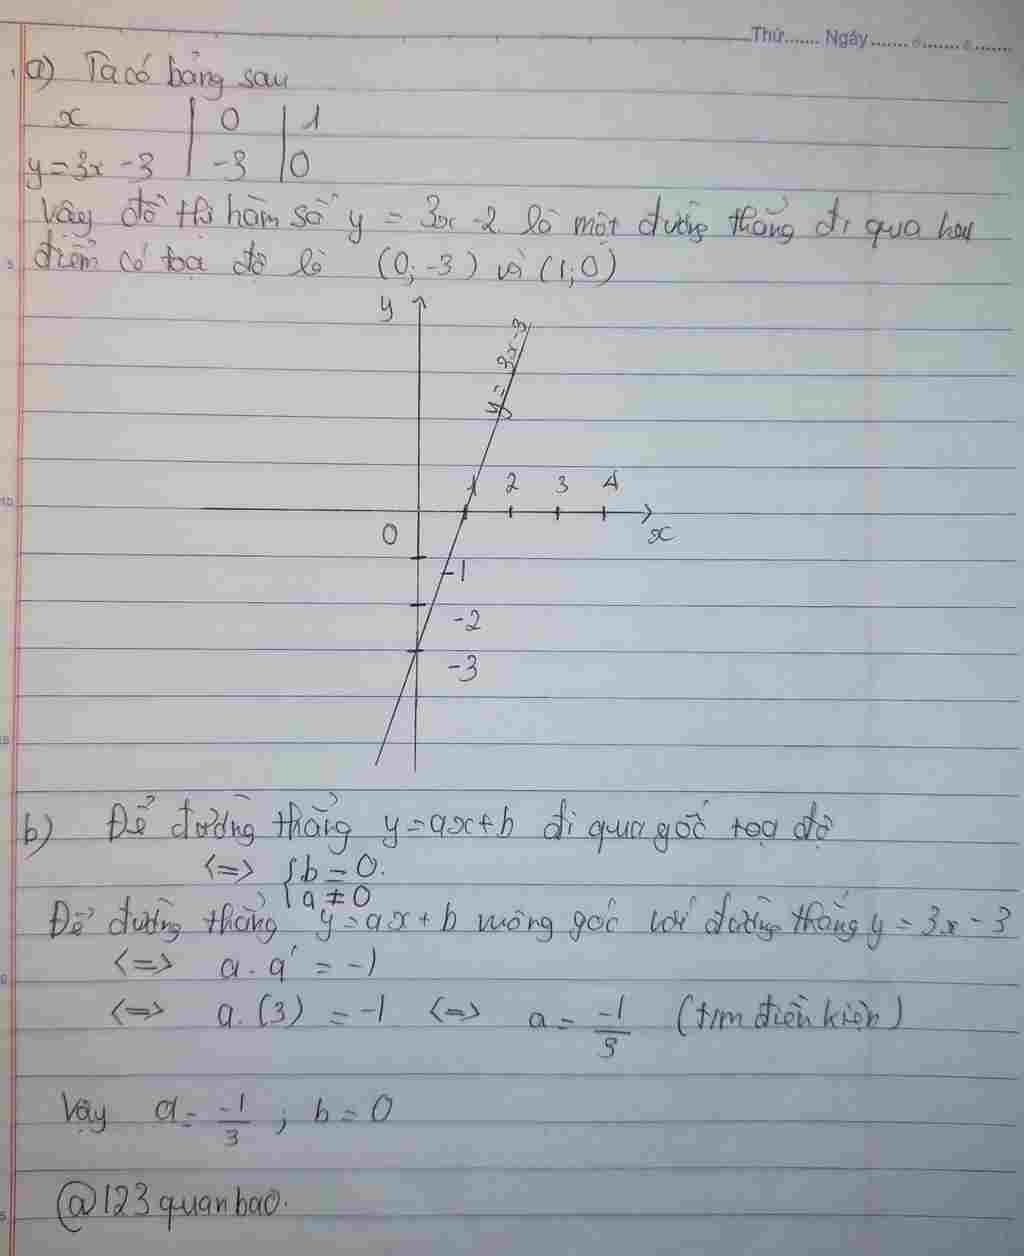 Thứ....... Ngày.......
a) Ta có bảng sau
x | 0 | 1
y = 3x - 3 | -3 | 0
Vậy đồ thị hàm số y = 3x - 2 là một đường thẳng đi qua hai
điểm có toạ độ là (0; -3) và (1; 0)
y
y = 3x - 3
1 2 3 4
0
x
-1
-2
-3
b) Để đường thẳng y = ax + b đi qua gốc toạ độ
<=> { b = 0.
a ≠ 0
Để đường thẳng y = ax + b vuông góc với đường thẳng y = 3x - 3
<=> a . a' = -1
<=> a. (3) = -1 <=> a = -1/3 (t/m điều kiện)
Vậy a = -1/3 ; b = 0
@123quanbao.